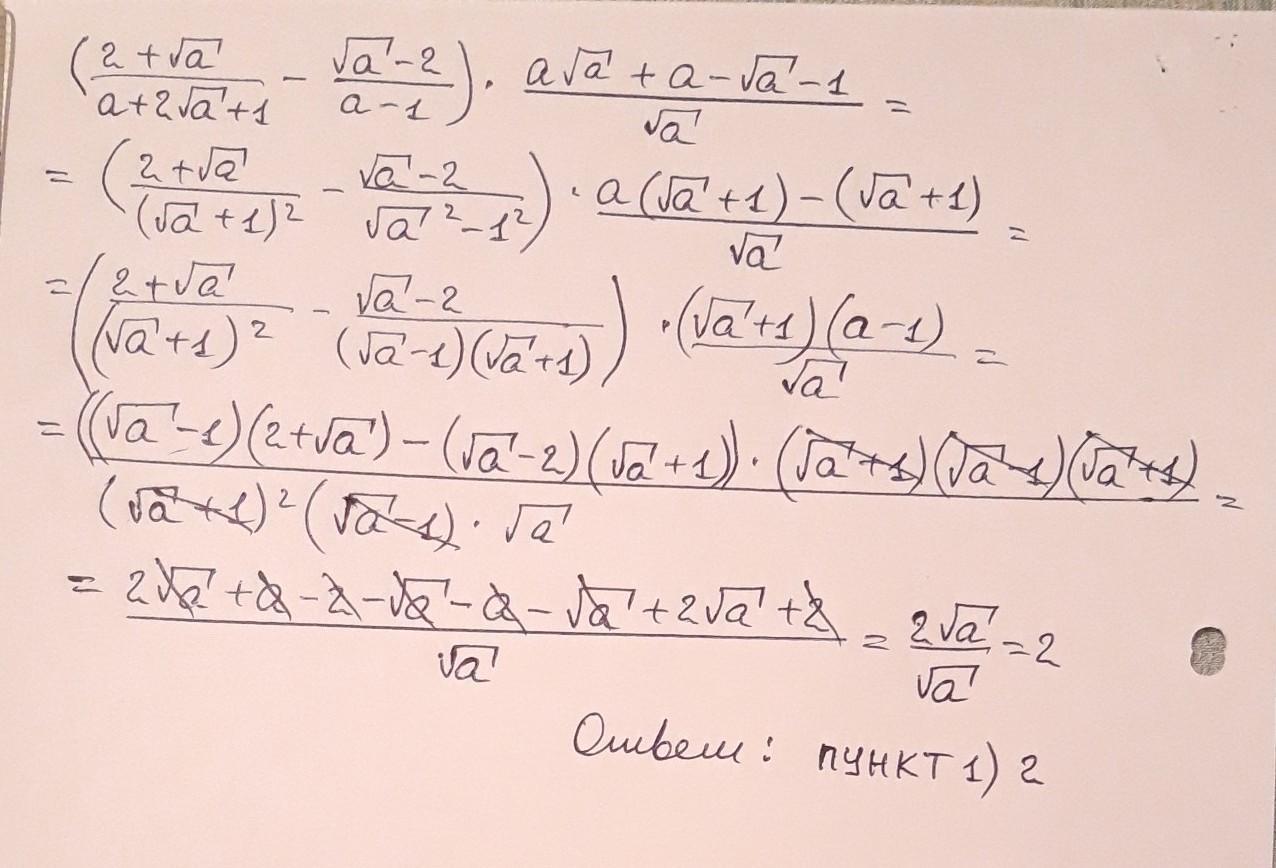 ((2+√a)/(a+2√a+1) - (√a-2)/(a-1)) · (a√a+a-√a-1)/√a =
= ((2+√a)/(√a+1)² - (√a-2)/(√a²-1²)) · (a(√a+1)-(√a+1))/√a =
= ((2+√a)/(√a+1)² - (√a-2)/((√a-1)(√a+1))) · ((√a+1)(a-1))/√a =
= (((√a-1)(2+√a)-(√a-2)(√a+1))·(√a+1)(√a-1)(√a+1))/((√a+1)²(√a-1)·√a) =
= (2√a+a-2-√a-a-√a+2√a+2)/√a = 2√a/√a = 2
Ответ: пункт 1) 2